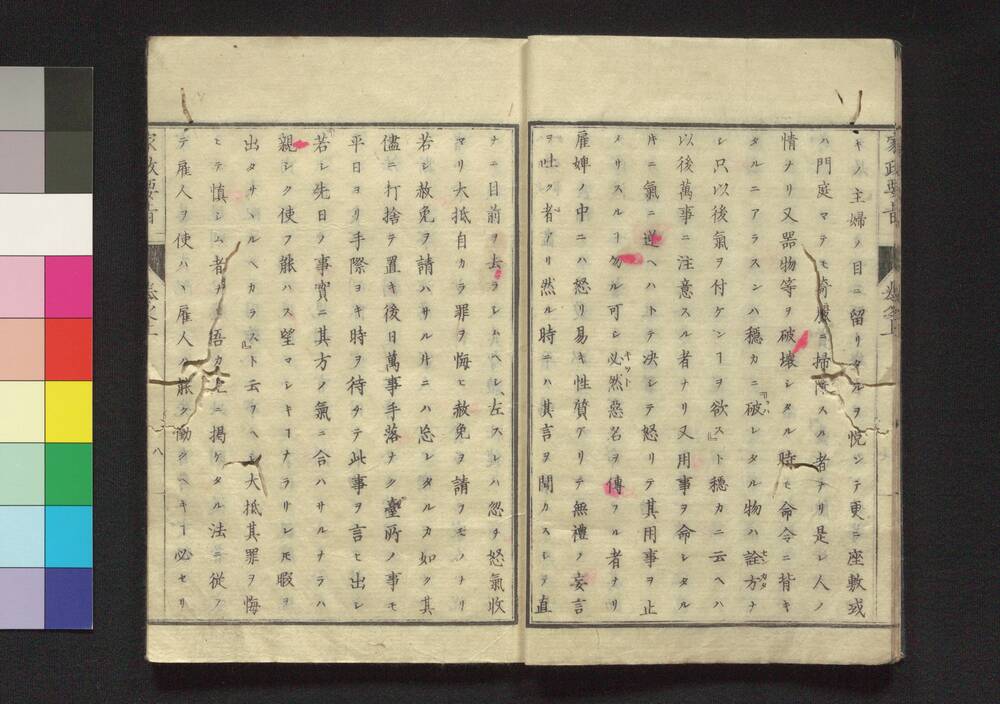 家政要旨 卷之上
キノ主婦ヲ目ニ留リタルヲ悦ンテ更ニ座敷或
ハ門庭マテモ奇麗ニ掃除スル者ナリ是レ人ノ
情ナリ又器物等ヲ破壊シタル時モ命令ニ背キ
タルニアラスンハ穏カニ『破レタル物ハ詮方ナ
シ只以後氣ヲ付ケンヿヲ欲ス』ト穏カニ云ヘハ
以後萬事ニ注意スル者ナリ又用事ヲ命シタル
片ニ氣ニ逆ヘハトテ决シテ怒リテ其用事ヲ止
メリスルヿ勿ル可シ必然惡名ヲ傳フル者ナリ
雇婢ノ中ニハ怒リ易キ性質アリテ無禮ノ妄言
ヲ吐ク者アリ然ル時ニハ其言ヲ聞カスシテ直
ナニ目前ヲ去ラシムヘシ、左スレハ忽チ怒氣收
マリ大抵自カラ罪ヲ悔ヒ赦免ヲ請フモノナリ
若シ赦免ヲ請ハサル片ニハ忘レタルカ如ク其
儘ニ打捨テ置キ後日萬事手落ナク臺所ノ事モ
平日ヨリ手際ヨキ時ヲ待チテ此事ヲ言ヒ出シ
若シ先日ノ事實ニ其方ノ氣ニ合ハサルナラハ
親シク使フ能ハス望マシキヿナラリシ𪜈暇ヲ
出タサヽルヘカラス』ト云フヘシ大抵其罪ヲ悔
ヒテ愼シム者ナ 吾カ ニ掲ケタル法ニ從フ
テ雇人ヲ使ハヽ雇人ク能ク働クヘキヿ必セリ
家政要旨 卷之上 八